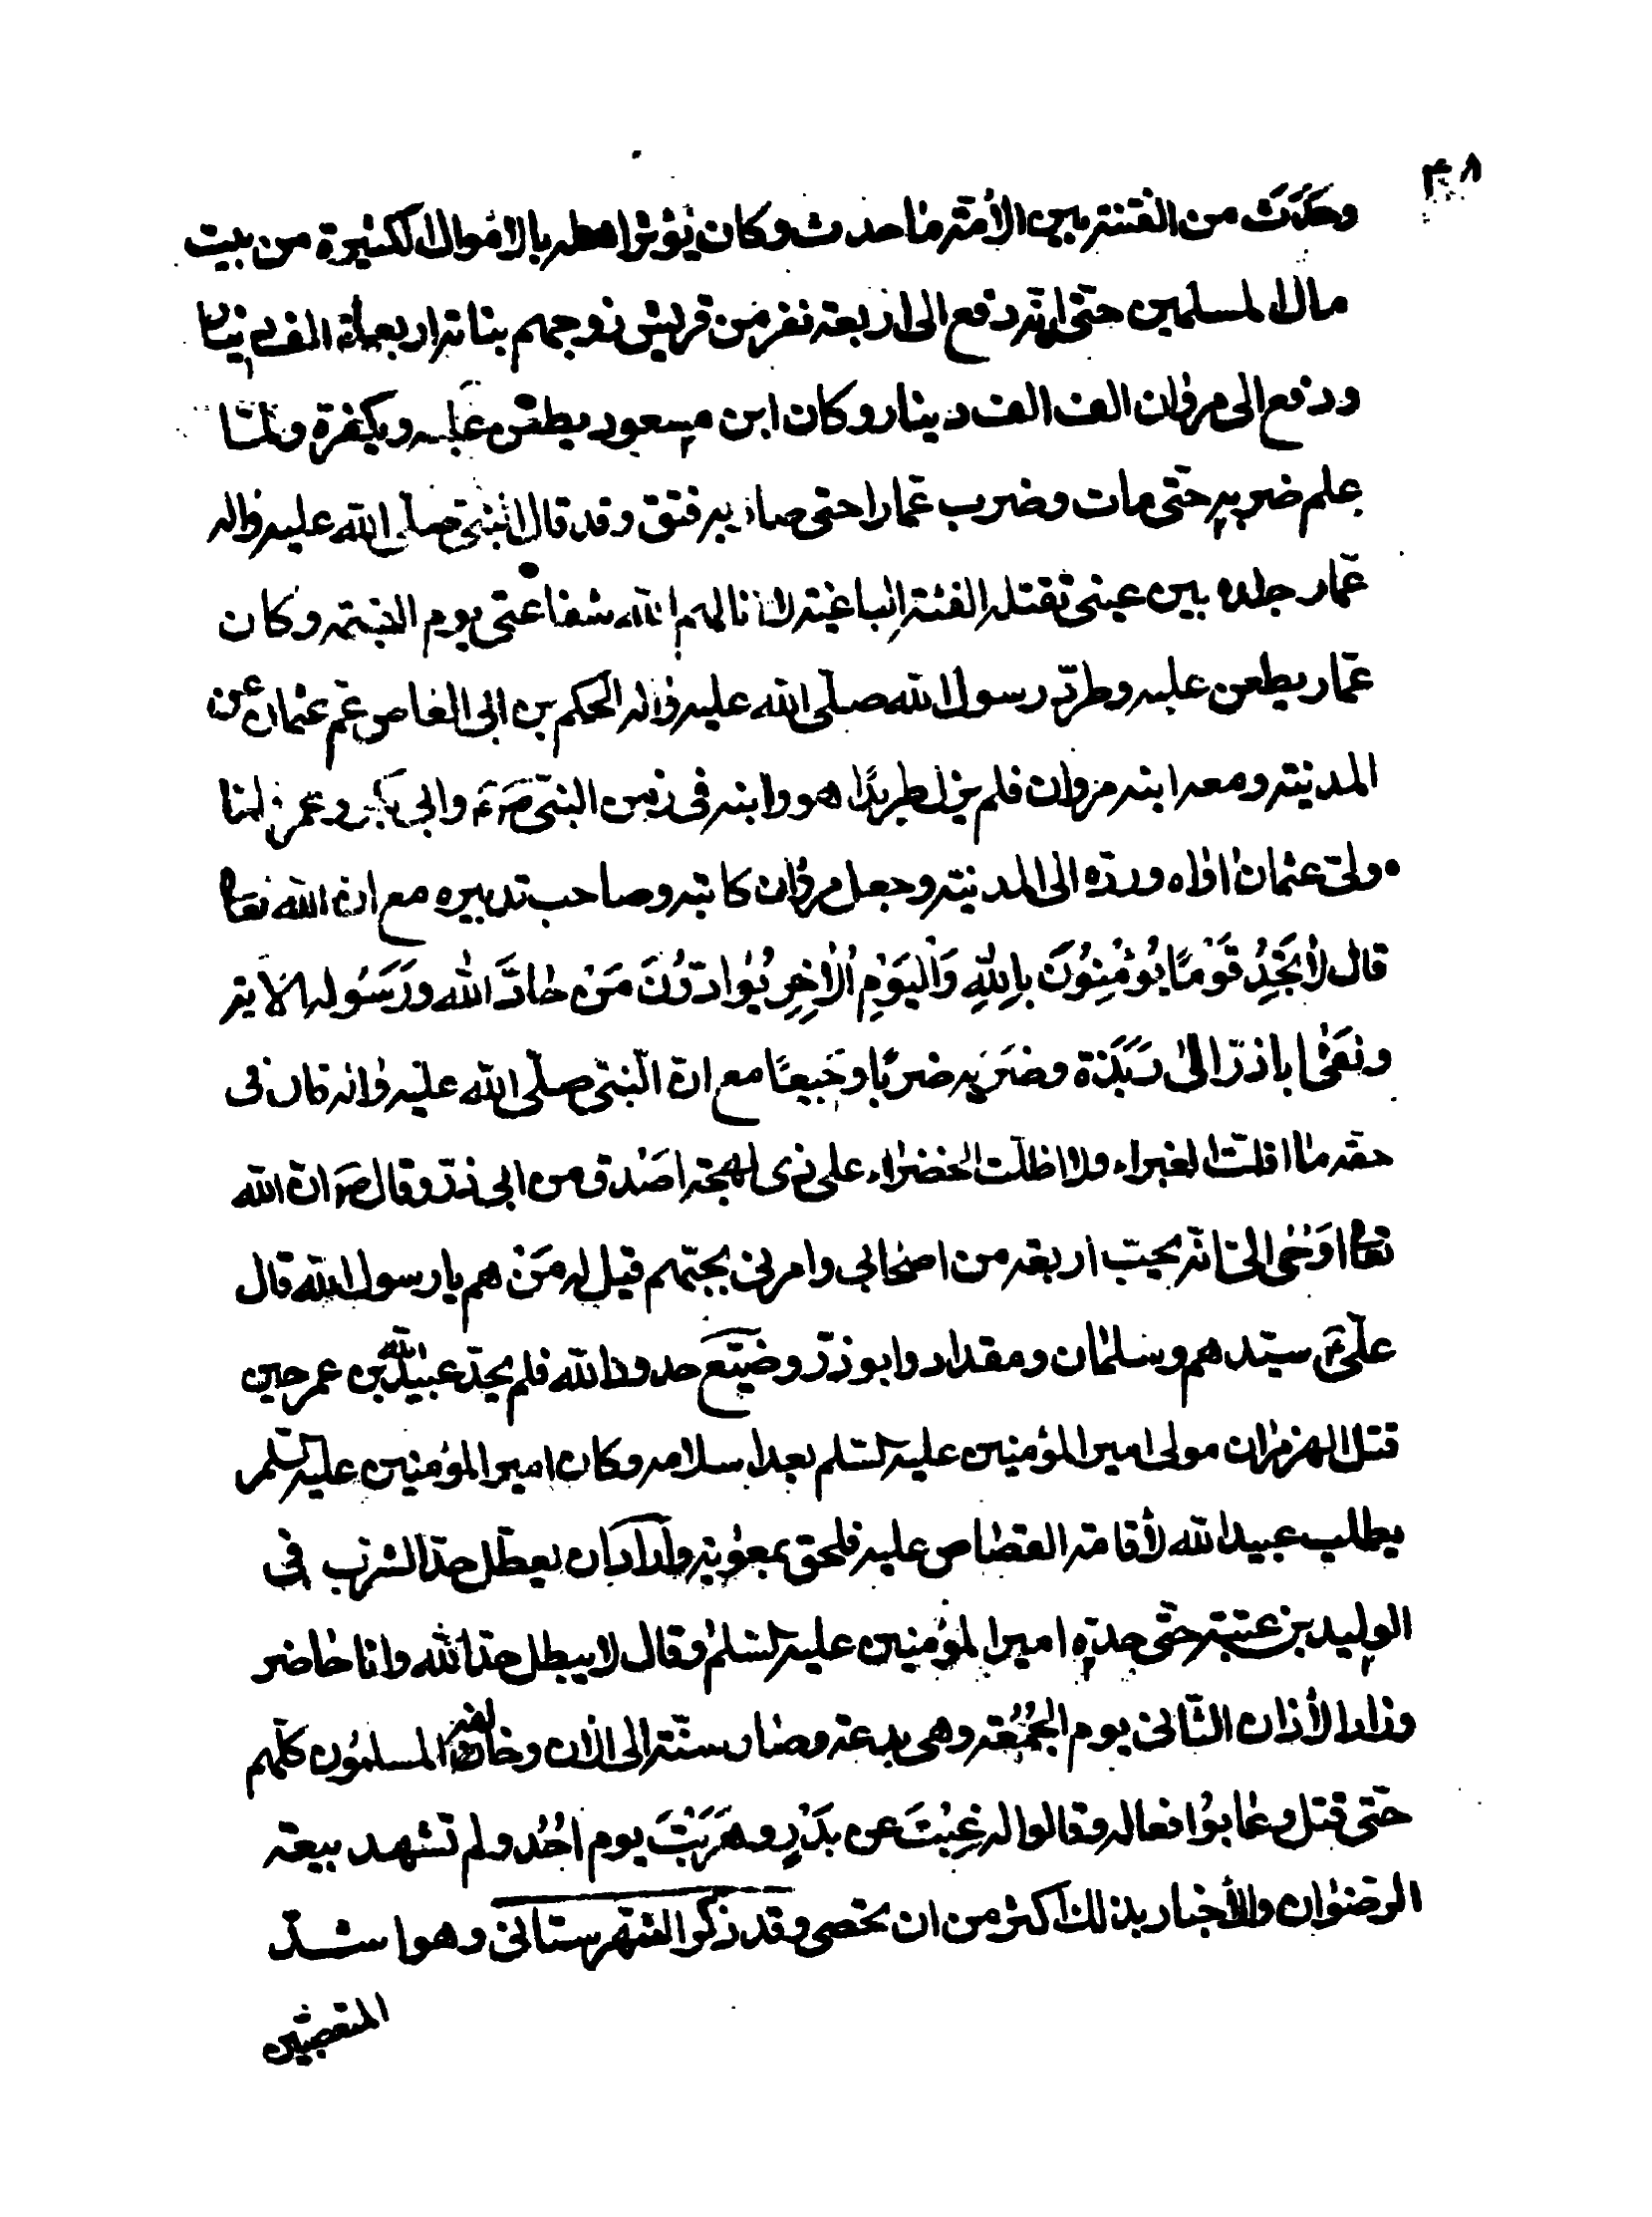 ۴۸
وحَدَثَ من الفتنة بين الأمّة ما حدث وكان يؤثر اهله بالاموال الكثيرة من بيت
مال المسلمين حتى انه دفع الى اربعة نفر من قريش زوجهم بناته اربعماة الف دينار
ودفع الى مروان الف الف دينار وكان ابن مسعود يطعن عليه ويكفره ولما
علم ضربه حتى مات وضرب عمارا حتى صار به فتق وقد قال النبي صلى الله عليه واله
عمار جلده بين عيني تقتله الفئة الباغية لا انالهم الله شفاعتي يوم القيمة وكان
عمار يطعن عليه وطرد رسول الله صلى الله عليه واله الحكم بن ابي العاص عم عثمان عن
المدينة ومعه ابنه مروان فلم يزل طريدًا هو وابنه في زمن النبي ص وابي بكر وعمر فلما
ولي عثمان اواه ورده الى المدينة وجعل مروان كاتبه وصاحب تدبيره مع ان الله تعالى
قال لا تَجِدُ قَوْمًا يُؤْمِنُونَ بِاللهِ وَالْيَوْمِ الْاخِرِ يُوادّونَ مَنْ حَادَّ اللهَ وَرَسُوله الاية
ونفى اباذر الى رَبَذة وضَرَبه ضربًا وجيعًا مع ان النبي صلى الله عليه واله قال في
حقه ما اقلّت الغبراء ولا اظلّت الخضراء على ذى لهجة اصدق من ابي ذر وقال ص ان الله
تعالى اوحى الى انه يحبّ اربعة من اصحابي وامرني بحبّهم قيل له مَنْ هم يا رسول الله قال
عليّ سيدهم وسلمان ومقداد وابوذر وضيّع حدود الله فلم يحدّ عبيد الله بن عمر حين
قتل الهرمزان مولى امير المؤمنين عليه السلم بعد اسلامه وكان امير المؤمنين عليه السلم
يطلب عبيد الله لأقامة القصاص عليه فلحق بمعوية واراد ان يعطّل حدّ الشرب في
الوليد بن عتبة حتى حدّه امير المؤمنين عليه السلم وقال لا يبطل حدّ الله وانا حاضر
وزاد الأذان الثاني يوم الجُمُعَة وهى بدعة وصار سنّة الى الان وخالفه المسلمون كلّهم
حتى قتل وعابوا فعاله وقالوا له غِبْتَ عن بَدْرٍ وهَرَبْتَ يوم اُحُد ولم تشهد بيعة
الرضوان والأخبار بذلك اكثر من ان تحصى وقد ذكر الشهرستاني وهو اشدّ
المتعصبين